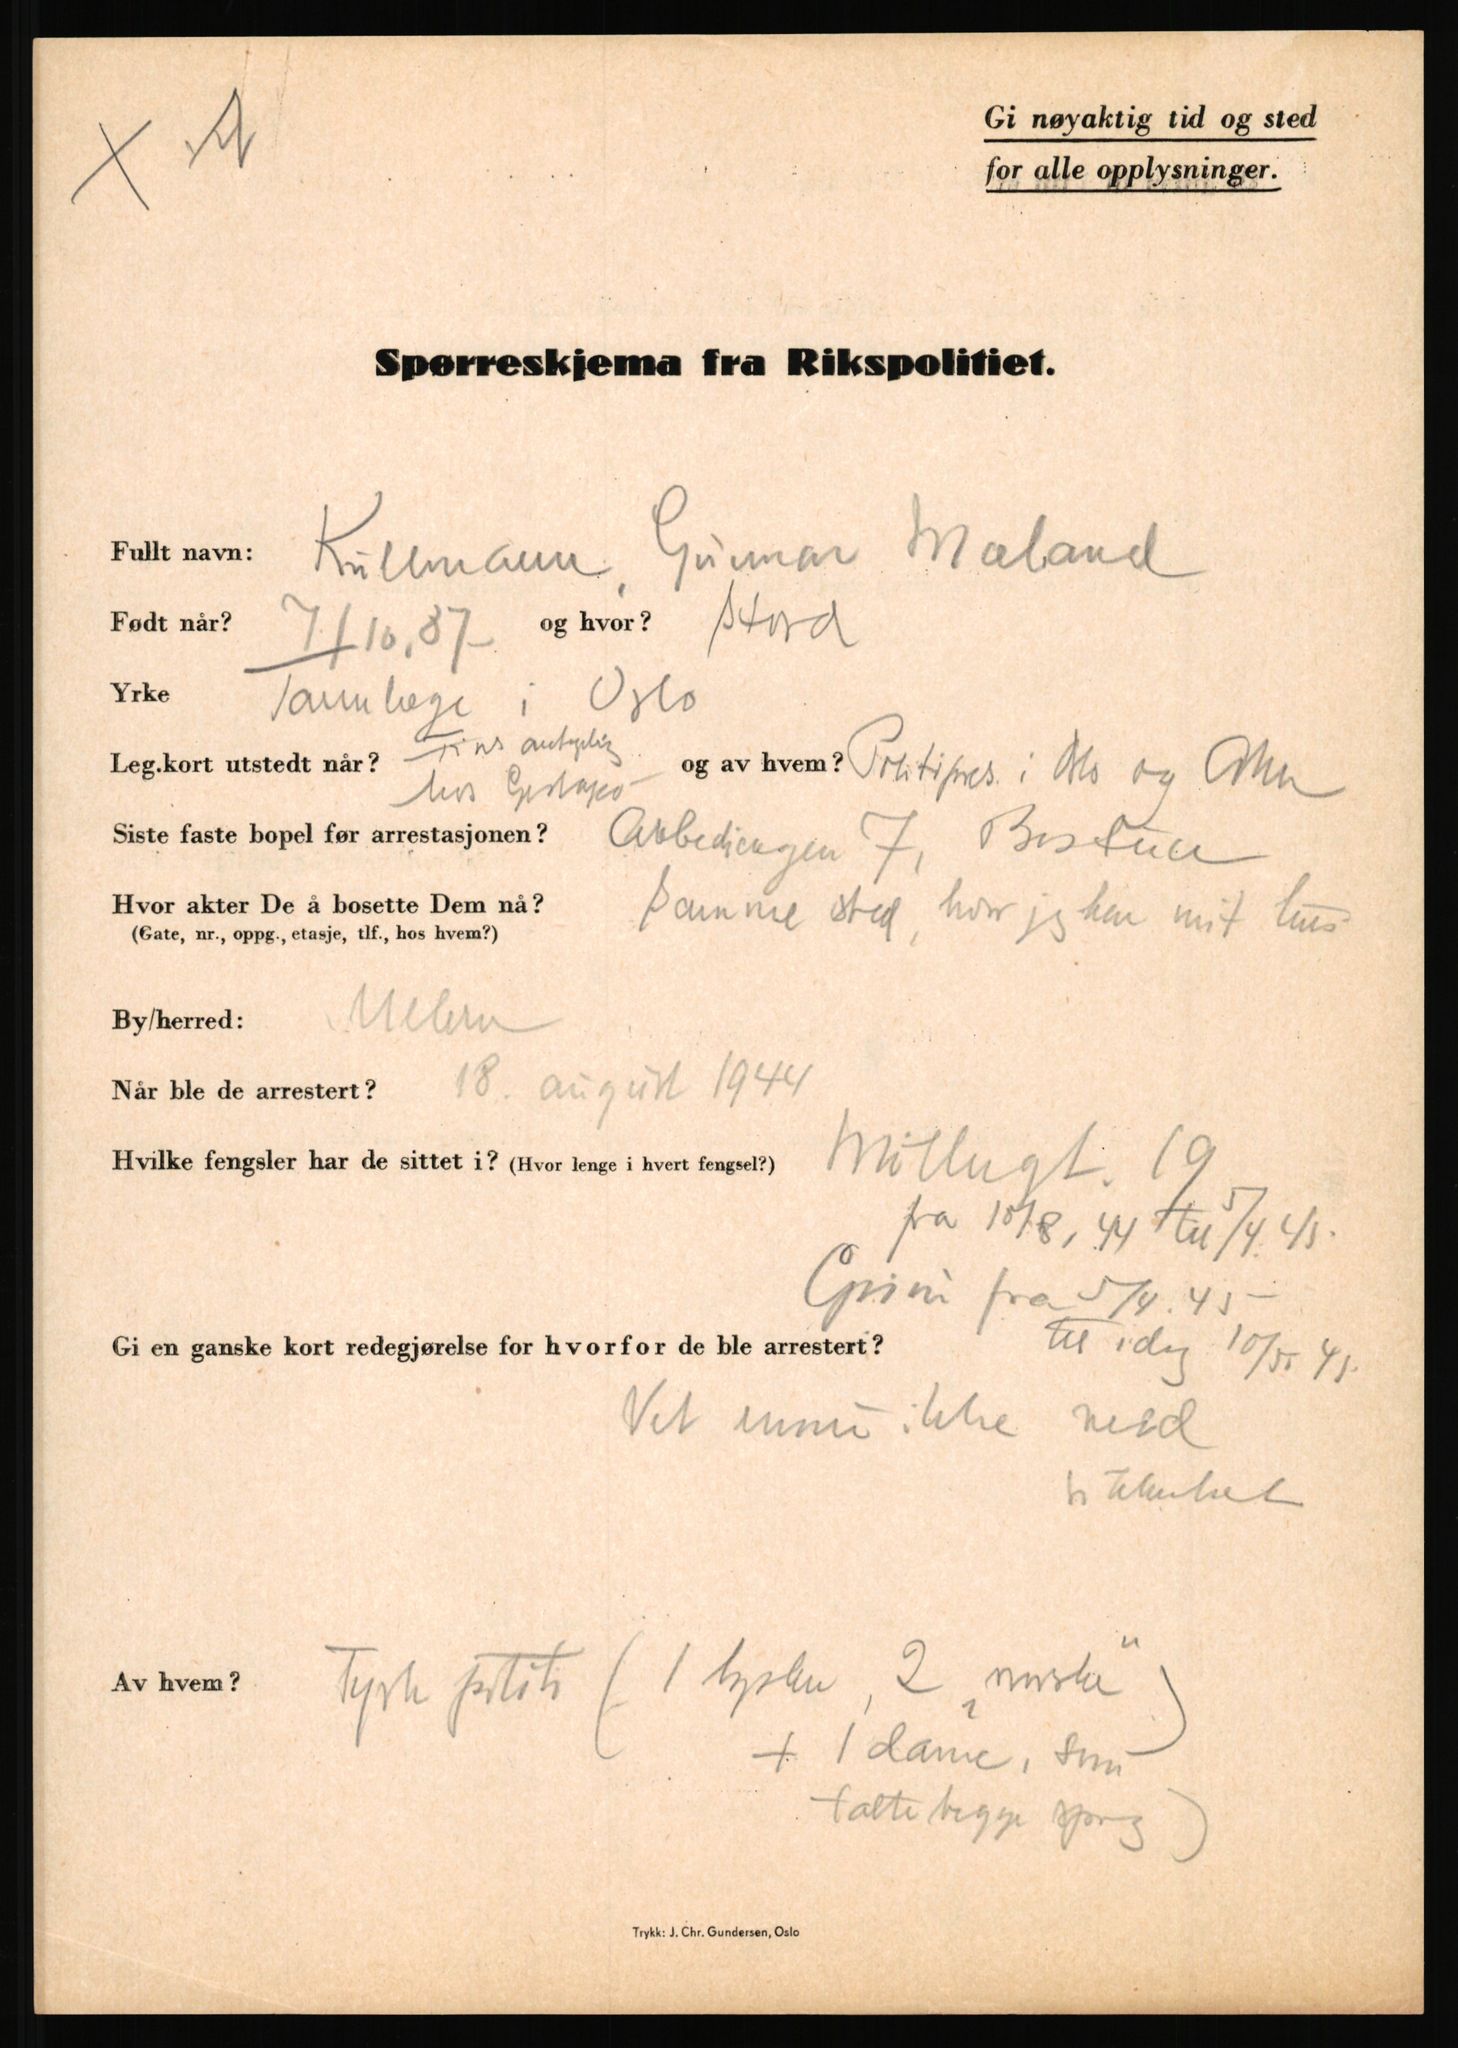 Gi nøyaktig tid og sted
for alle opplysninger.
Spørreskjema fra Rikspolitiet.
Fullt navn: Kullmann, Gunnar Mæland
Født når? 7/10.87 og hvor? Stord
Yrke Tannlæge i Oslo
Leg.kort utstedt når? Fins antagelig og av hvem? Politipres. i Oslo og Aker
hos Gestapo
Siste faste bopel før arrestasjonen? Abbediengen 7, Bestun
Hvor akter De å bosette Dem nå? Samme sted, hvor jeg har mit hus
(Gate, nr., oppg., etasje, tlf., hos hvem?)
By/herred: Ullern
Når ble de arrestert? 18. august 1944
Hvilke fengsler har de sittet i? (Hvor lenge i hvert fengsel?) Möllergt. 19
fra 18/8, 44 til 5/4. 45.
Grini fra 5/4. 45
til idag 10/5 45.
Gi en ganske kort redegjørelse for hvorfor de ble arrestert?
Vet ennu ikke med
sikkerhet
Av hvem? Tysk politi (1 tysker, 2 „norske“)
+ 1 dame, som
talte begge sprog)
Trykk: J. Chr. Gundersen, Oslo